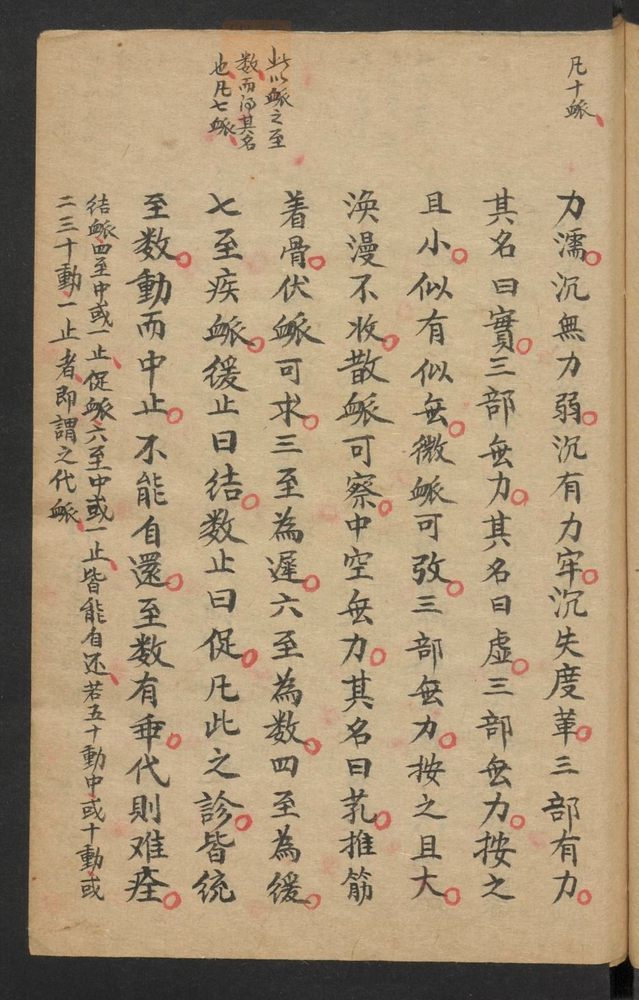 凡十脈
力濡沉無力弱沉有力牢沉失度革三部有力
其名曰實三部無力其名曰虛三部無力按之
且小似有似無微脈可攷三部無力按之且大
渙漫不收散脈可察中空無力其名曰芤推筋
着骨伏脈可求三至為遲六至為数四至為緩
七至疾脈緩止曰結数止曰促凡此之診皆統
至数動而中止不能自還至数有乖代則难痊
此以脈之至
数而得其名
也凡七脈
結脈四至中或一止促脈六至中或一止皆能自还若五十動中或十動或
二三十動一止者即謂之代脈